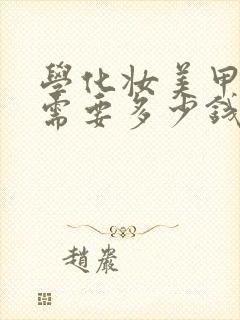 學化妝美甲
需要多少錢
趙嚴